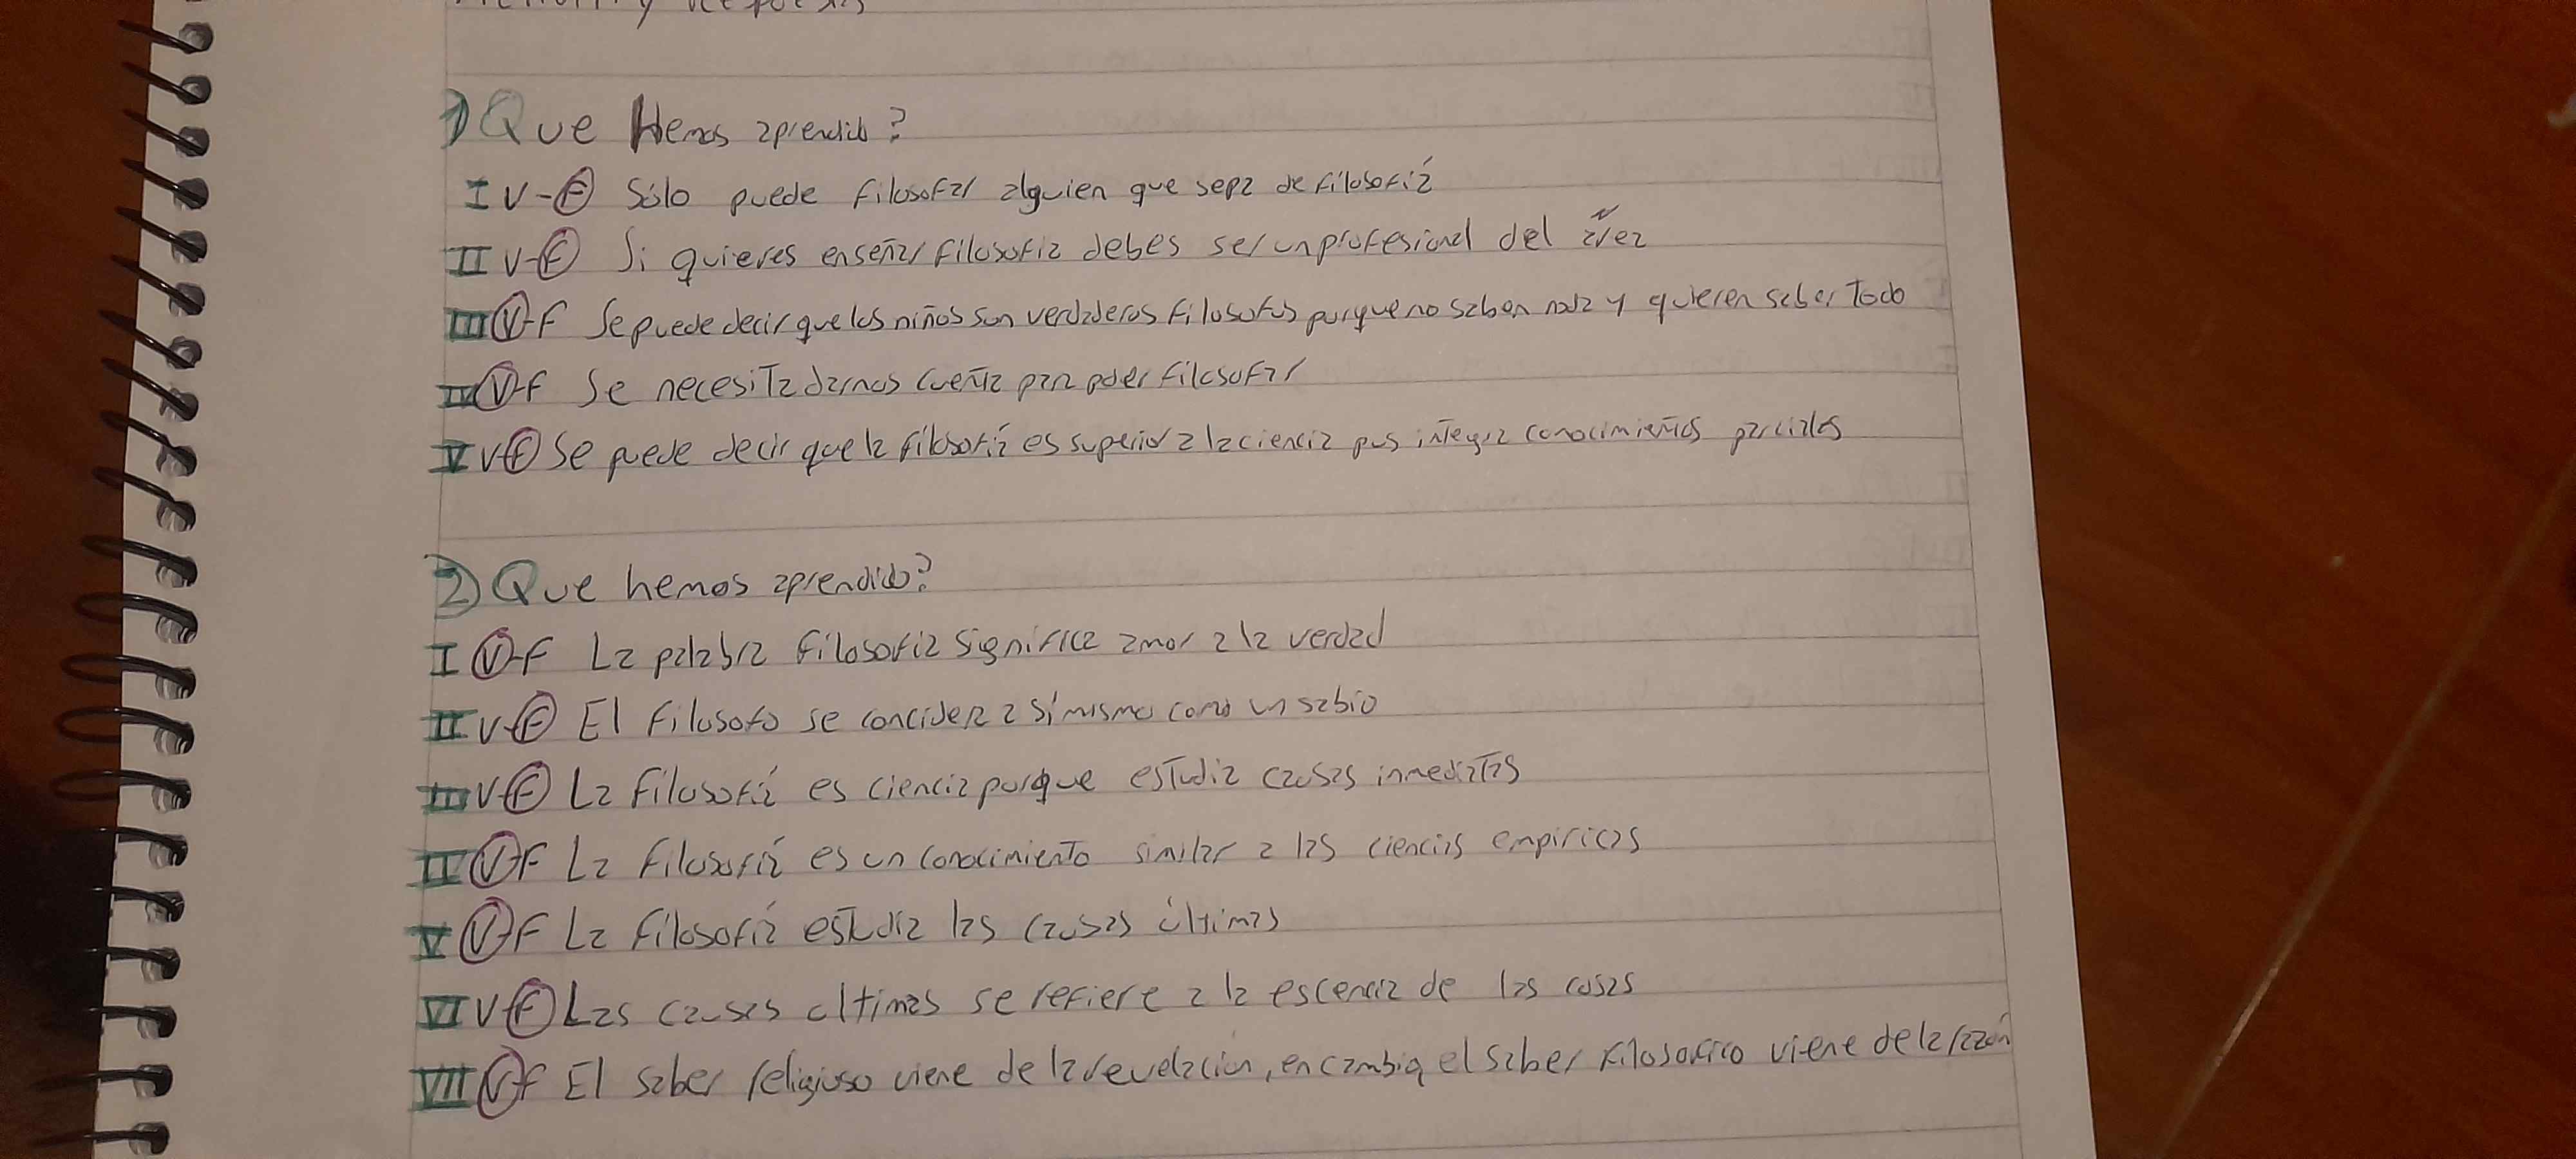 1) Que Hemos aprendido?
I V-F Sólo puede filosofar alguien que sepa de filosofía
II V-F Si quieres enseñar filosofia debes ser un profesional del área
III V-F Se puede decir que los niños son verdaderos filosofos porque no saben nada y quieren saber todo
IV V-F Se necesita darnos cuenta para poder filosofar
V V-F Se puede decir que la filosofía es superior a la ciencia pues integra conocimientos parciales
2) Que hemos aprendido?
I V-F La palabra filosofia significa amor a la verdad
II V-F El filosofo se concidera a sí mismo como un sabio
III V-F La filosofía es ciencia porque estudia causas inmediatas
IV V-F La filosofía es un conocimiento similar a las ciencias empiricas
V V-F La filosofía estudia las causas últimas
VI V-F Las causas ultimas se refiere a la escencia de las cosas
VII V-F El saber religioso viene de la revelacion, en cambio, el saber filosofico viene de la razón